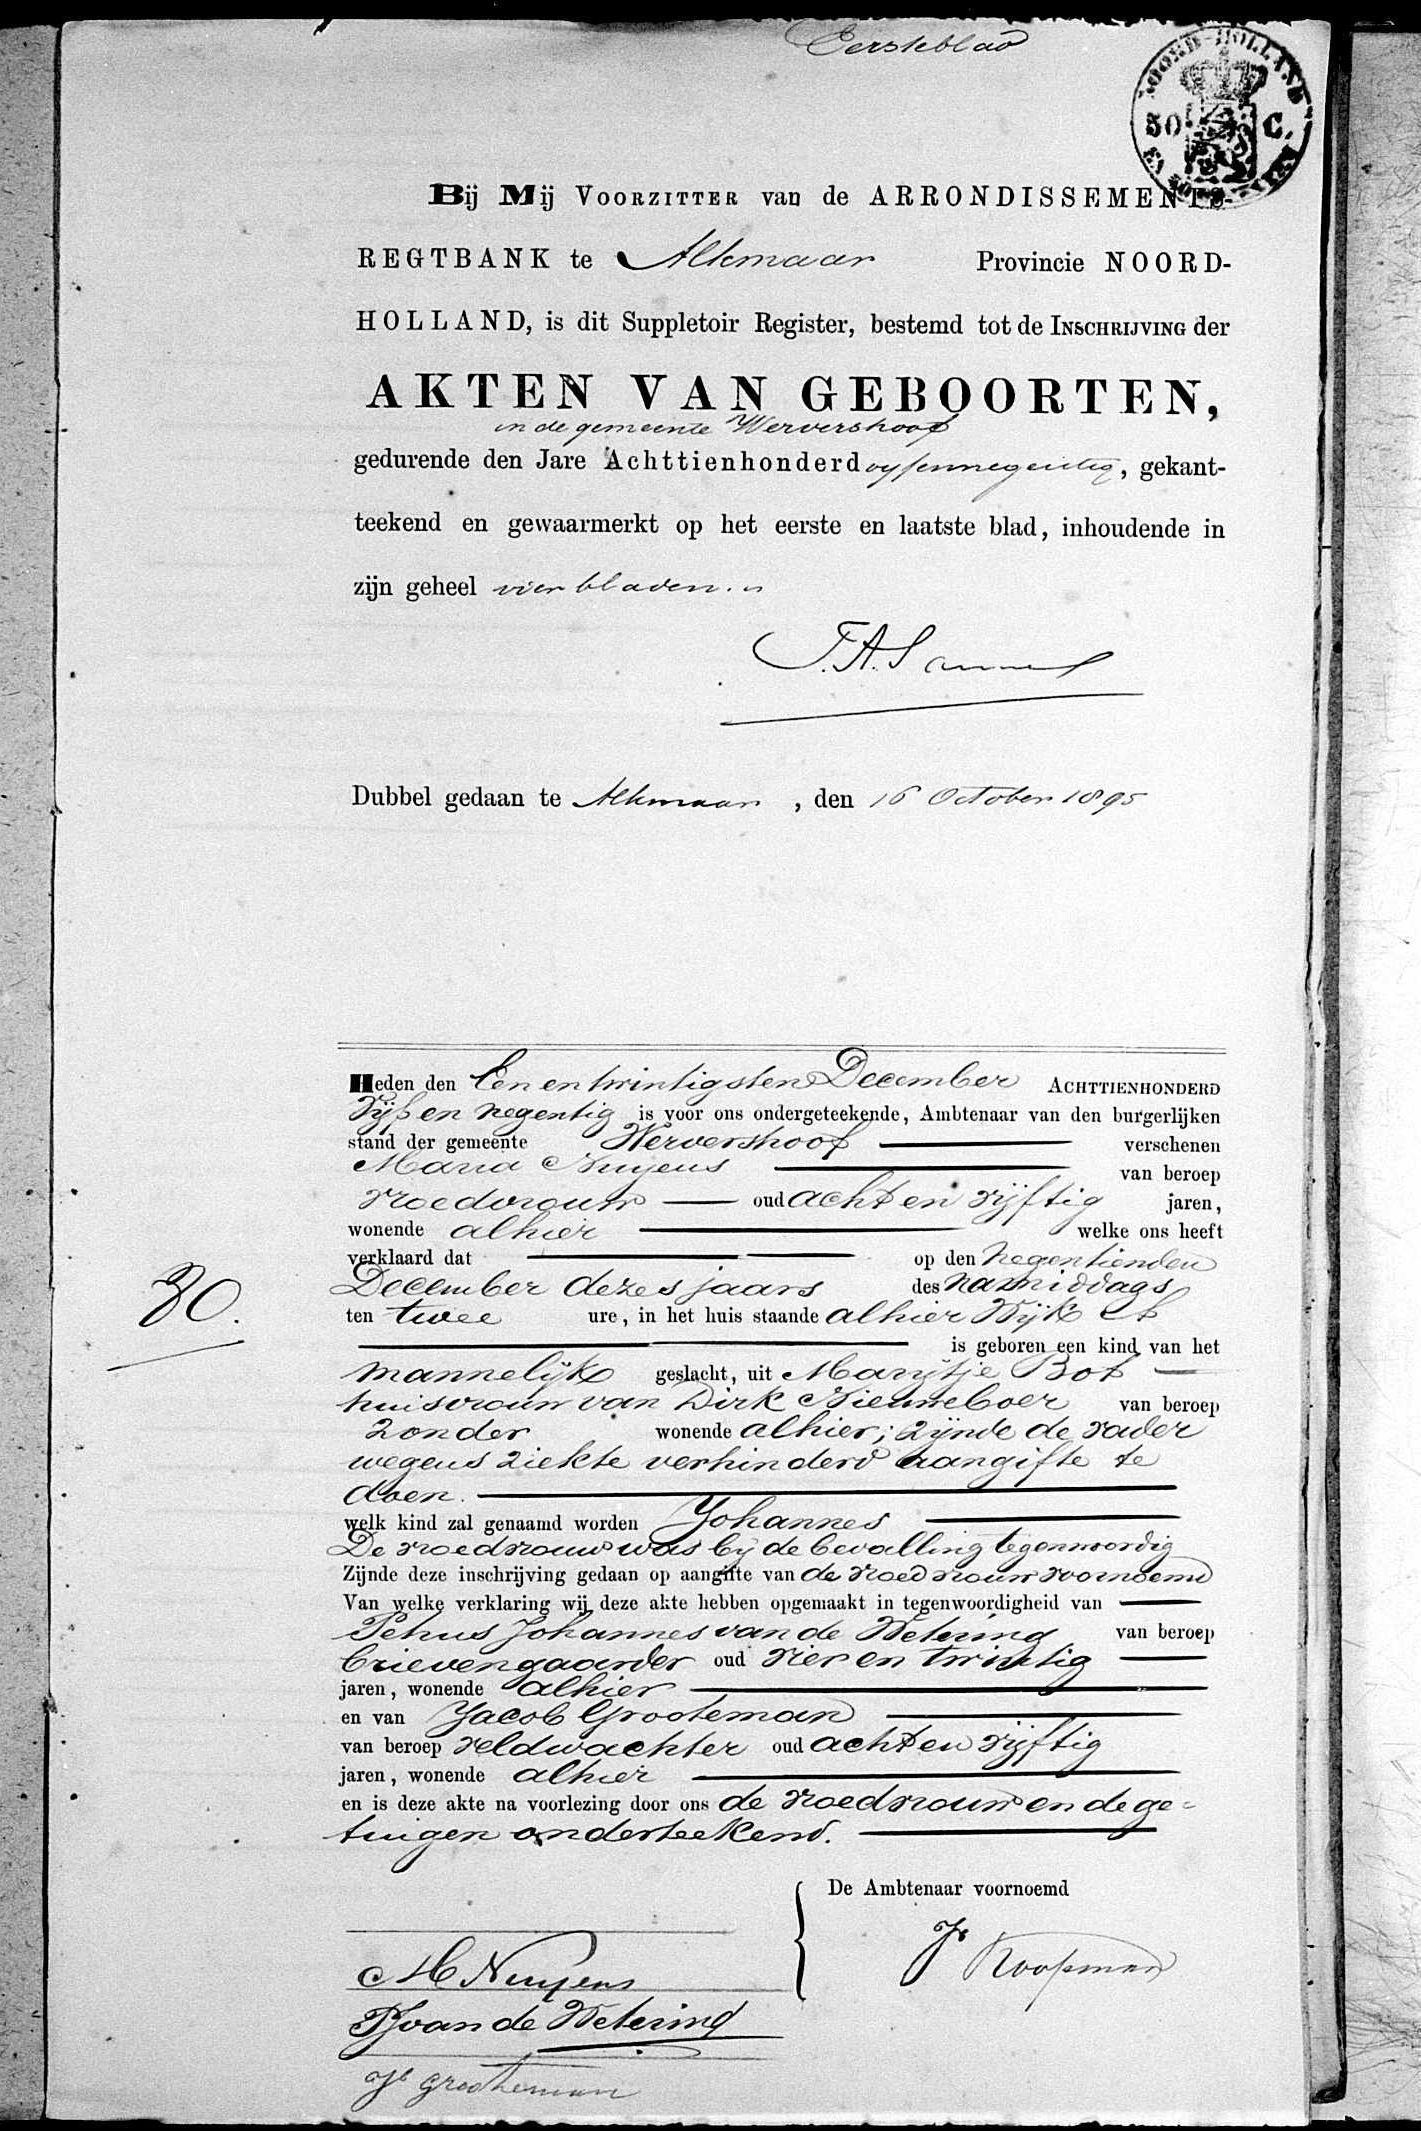 Eersteblad
NOORD-HOLLAND
50 C.
Bij Mij VOORZITTER van de ARRONDISSEMENTS-
REGTBANK te Alkmaar Provincie NOORD-
HOLLAND, is dit Suppletoir Register, bestemd tot de INSCHRIJVING der
AKTEN VAN GEBOORTEN,
in de gemeente Wervershoof
gedurende den Jare Achttienhonderd vyfennegentig, gekant-
teekend en gewaarmerkt op het eerste en laatste blad, inhoudende in
zijn geheel vier bladen.
Dubbel gedaan te Alkmaar, den 16 October 1895
Heden den Een en twintigsten December ACHTTIENHONDERD
Vijf en negentig is voor ons ondergeteekende, Ambtenaar van den burgerlijken
stand der gemeente Wervershoof verschenen
Maria Nuyens van beroep
vroedvrouw oud acht en vijftig jaren,
wonende alhier welke ons heeft
verklaard dat op den negentienden
December dezes jaars des namiddags
ten twee ure, in het huis staande alhier Wijk
is geboren een kind van het
80.
mannelijk geslacht, uit Marijtje Bot
huisvrouw van Dirk Nieuweboer van beroep
zonder wonende alhier; zijnde de vader
wegens ziekte verhinderd aangifte te
doen.
welk kind zal genaamd worden Johannes
De vroedvrouw was bij de bevalling tegenwoordig
Zijnde deze inschrijving gedaan op aangifte van de vroedvrouw voornoemd
Van welke verklaring wij deze akte hebben opgemaakt in tegenwoordigheid van
Petrus Johannes van de Wetering van beroep
brievengaarder oud vier en twintig
jaren, wonende alhier
en van Jacob Grooteman
van beroep veldwachter oud acht en vijftig
jaren, wonende alhier
en is deze akte na voorlezing door ons de vroedvrouw en de ge-
tuigen onderteekend.
De Ambtenaar voornoemd
Koopman
M Nuyens
PJ van de Wetering
Jb Grooteman